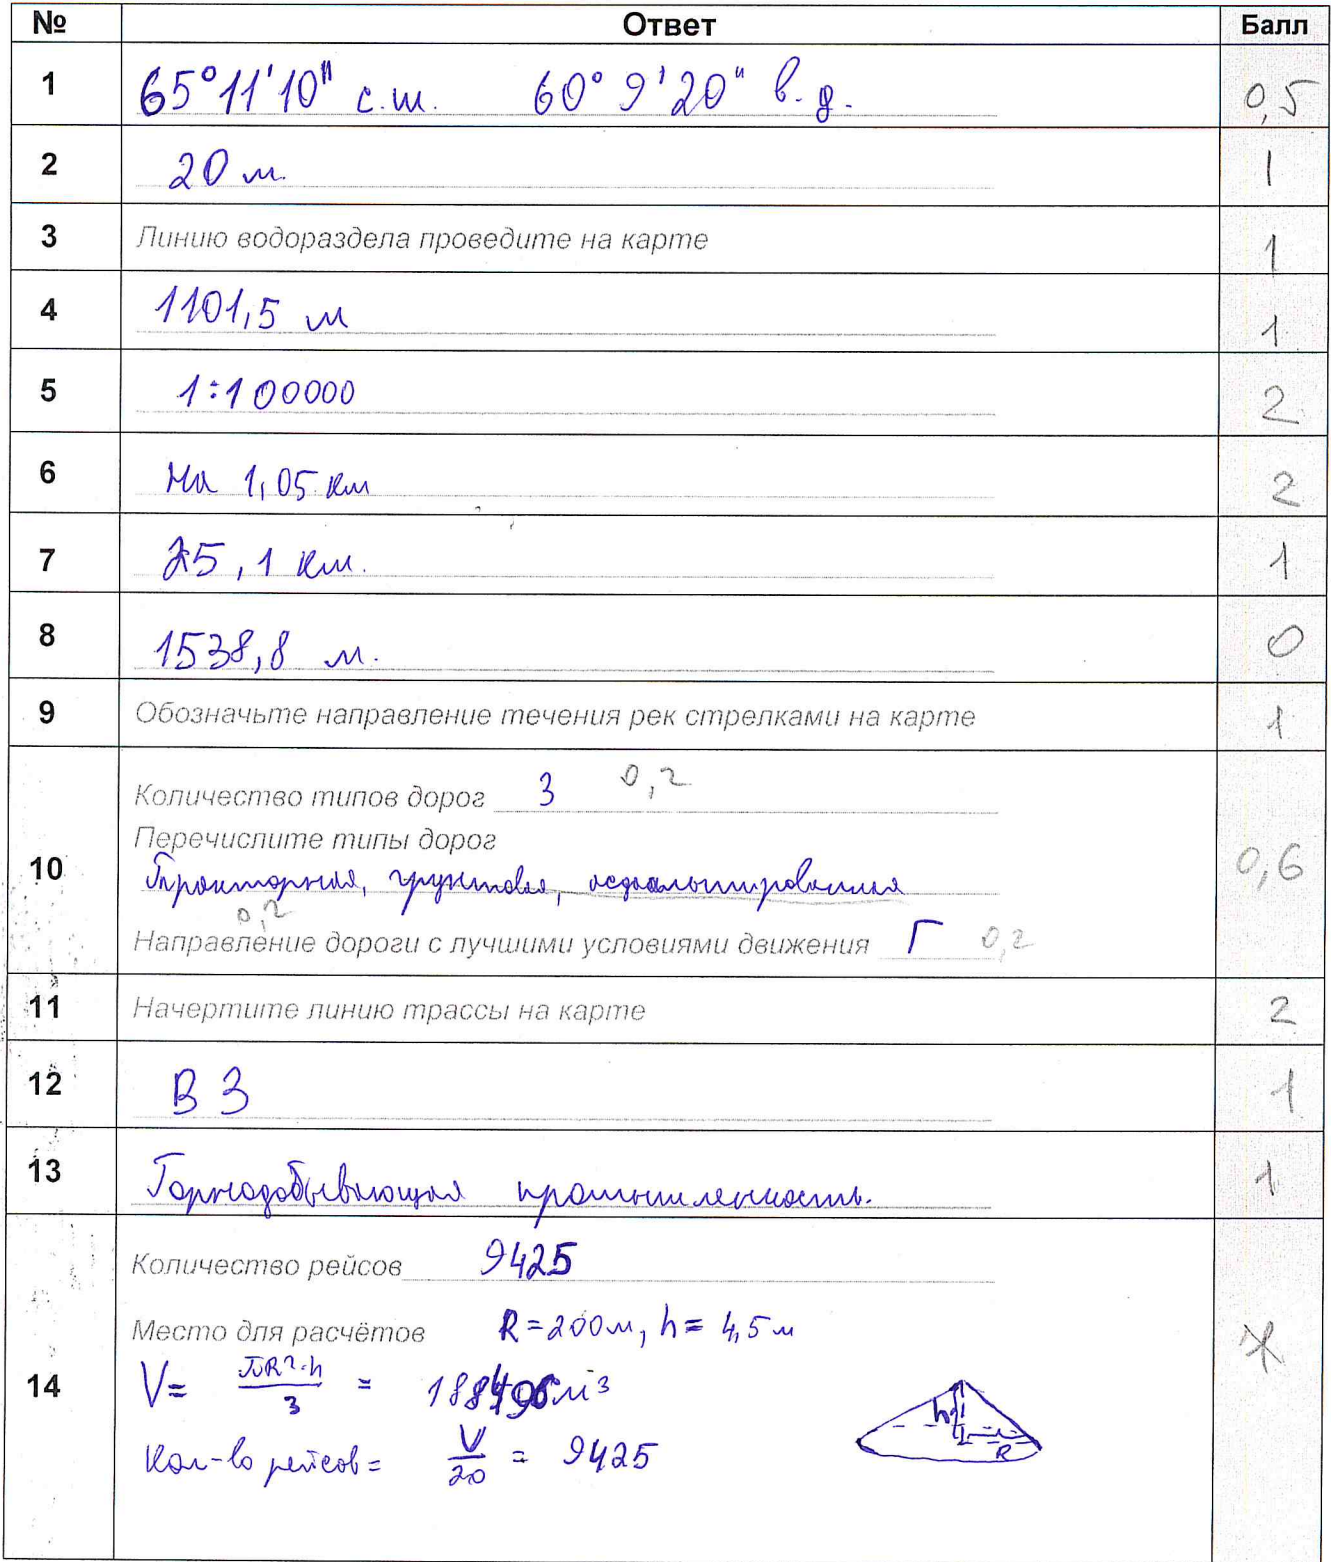 № Ответ Балл
1 65°11'10" с.ш. 60°9'20" в.д. 0,5
2 20 м. 1
3 Линию водораздела проведите на карте 1
4 1101,5 м 1
5 1:100000 2
6 На 1,05 км 2
7 25,1 км. 1
8 1538,8 м. 0
9 Обозначьте направление течения рек стрелками на карте 1
10
Количество типов дорог 3 0,2
Перечислите типы дорог
Тракторная, грунтовая, асфальтированная 0,6
0,2
Направление дороги с лучшими условиями движения Г 0,2
11 Начертите линию трассы на карте 2
12 В 3 1
13 Горнодобывающая промышленность. 1
14
Количество рейсов 9425
Место для расчётов R=200м, h= 4,5м
V= πR²·h/3 = 188496м³
h
R
Кол-во рейсов= V/20 = 9425